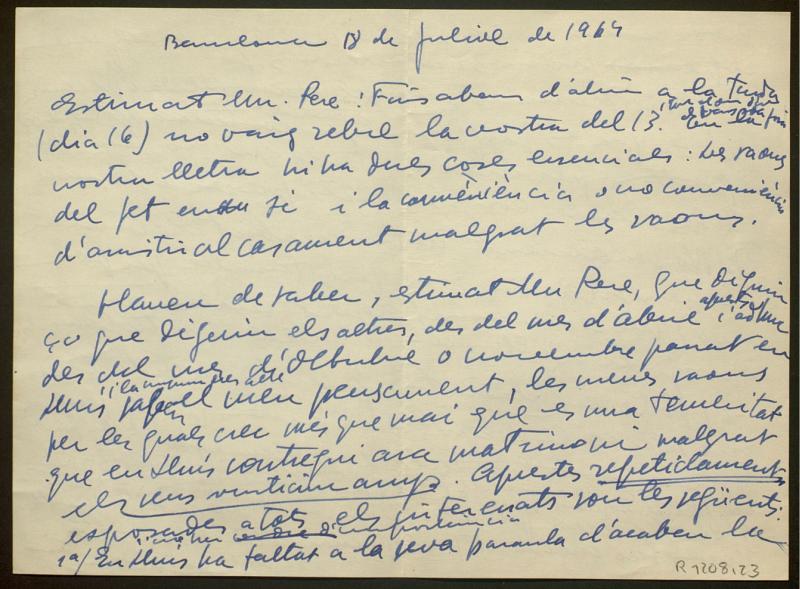 Barcelona 18 de Juliol de 1964
Estimat Mn. Pere: Fins abans d'ahir a la tarda
(dia 16) no vaig rebre la vostra del 13. En la
vostra lletra hi ha dues coses essencials: Les raons
del fet en si i la convèniència o no conveniència
d'assistir al casament malgrat les raons.
Haveu de saber, estimat Mn Pere, que diguin
ço que diguin els altres, des del mes d'abril i àdhuc
des del mes d'Octubre o novembre passat en
Lluís sap el meu pensament, les meves raons
per les quals crec més que mai que es una temeritat
que en Lluís contregui ara matrimoni malgrat
els seus vinticinc anys. Aquestes repetidament
esposades a tots els interessats son les següents:
1a/ En Lluís ha faltat a la seva paraula d'acabar la
R.1208,23